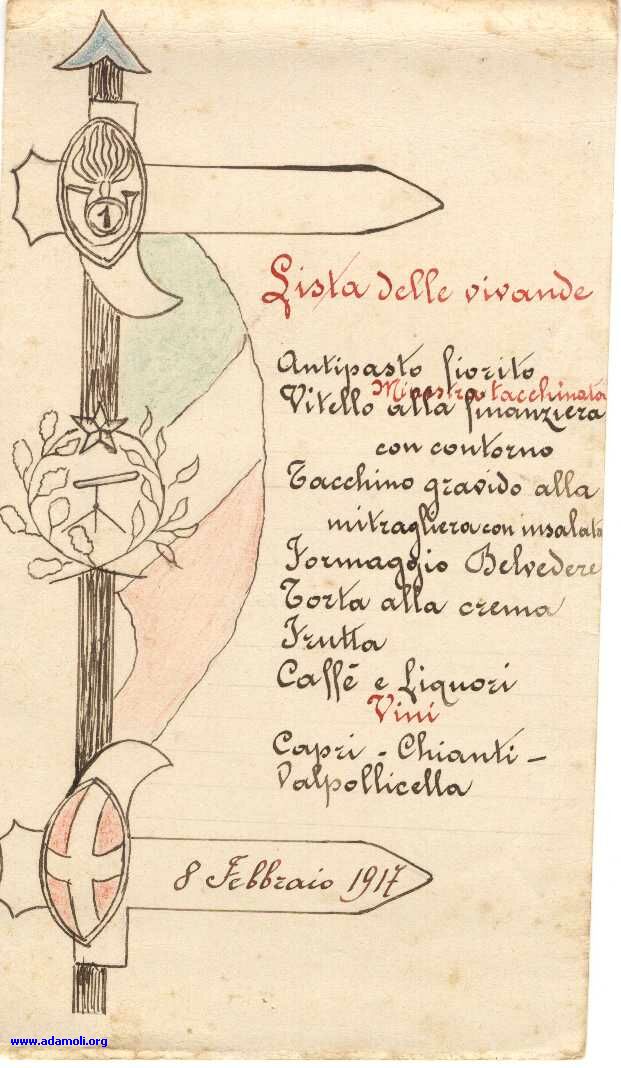 1
Lista delle vivande
Antipasto fiorito
Minestra tacchinata
Vitello alla finanziera
con contorno
Tacchino gravido alla
mitragliera con insalata
Formaggio Belvedere
Torta alla crema
Frutta
Caffè e Liquori
Vini
Capri - Chianti -
Valpollicella
8 Febbraio 1917
www.adamoli.org